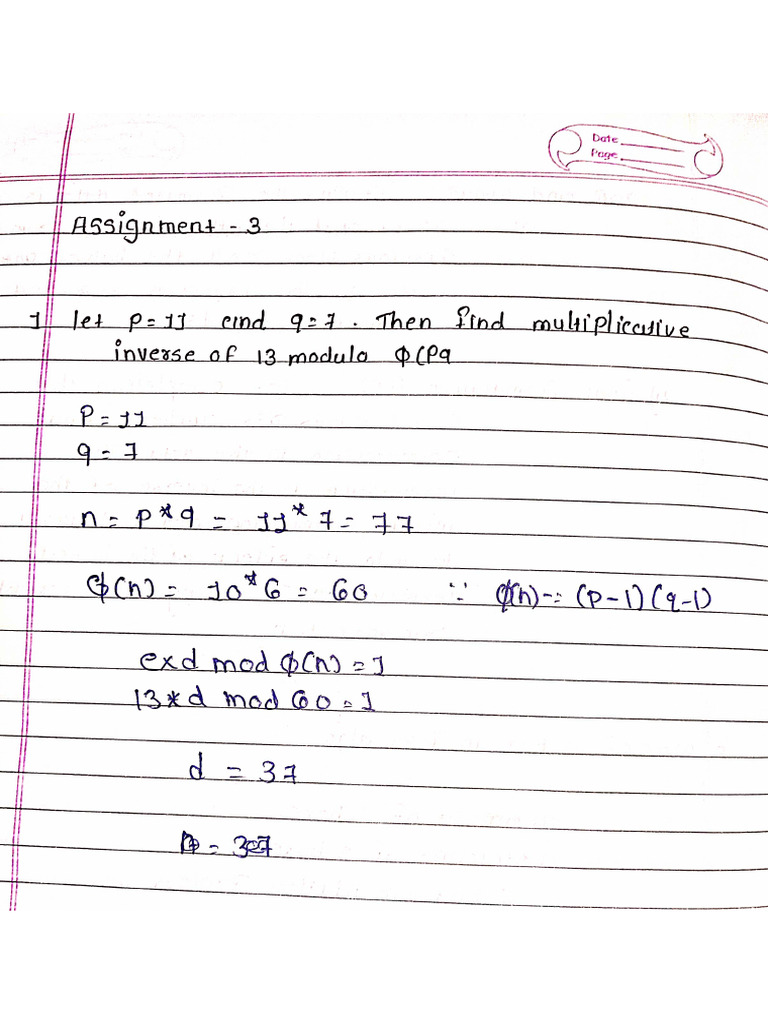 Date
Page
Assignment - 3
1 let P = 11 and q = 7. Then find multiplicative
inverse of 13 modulo ϕ(Pq
P = 11
q = 7
n = P * q = 11 * 7 = 77
ϕ(n) = 10 * 6 = 60 ∵ ϕ(n) = (p-1)(q-1)
exd mod ϕ(n) = 1
13*d mod 60 = 1
d = 37